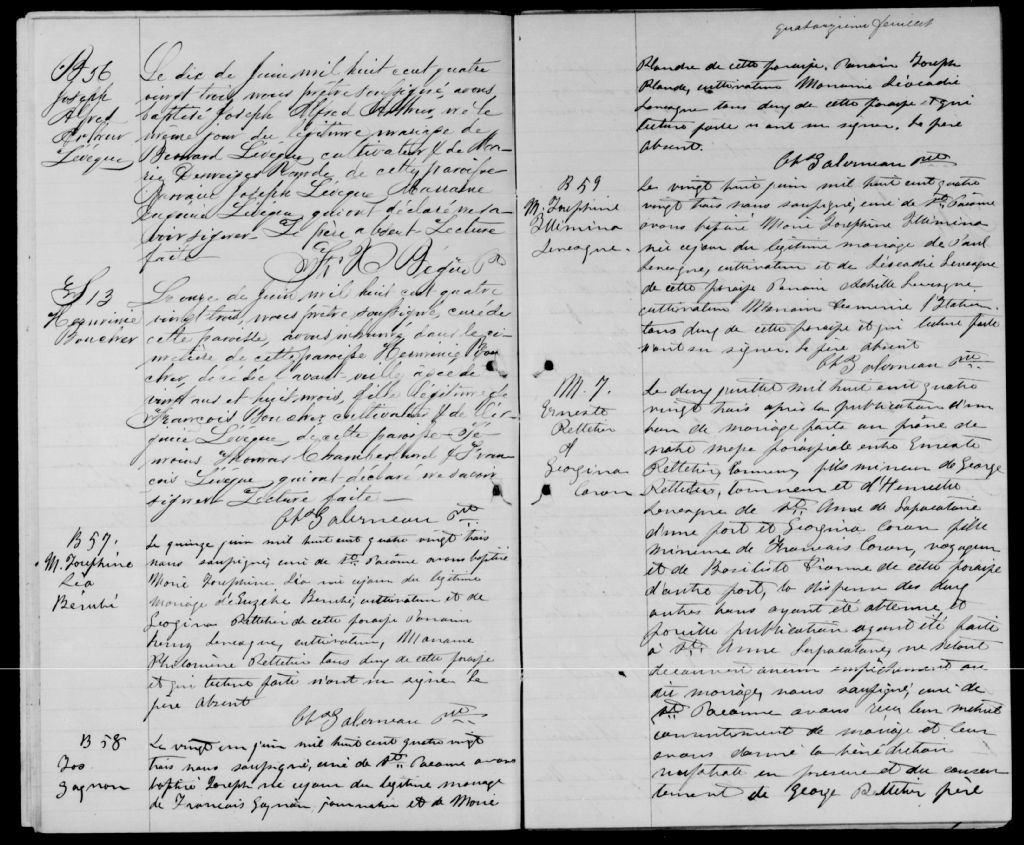 B 56
Joseph
Alfred
Arthur
Lévêque
Le dix de Juin mil huit cent quatre
vingt trois, nous prêtre soussigné, avons
baptisé Joseph Alfred Arthur, né le
même jour du légitime mariage de
Bernard Lévêque cultivateur & de Ma-
rie de cette paroisse
Parrain Joseph Lévêque Marraine
Lévêque qui ont déclaré ne sa-
voir signer. Le père absent Lecture
faite
F. X. Bégin Ptre
S 13
Herminie
Boucher
Le onze de Juin mil huit cent quatre
vingt trois, nous prêtre soussigné, curé de
cette paroisse, avons inhumé dans le ci-
metière de cette paroisse Herminie Bou-
cher, décédée avant-veille âgée de
vingt ans et huit mois, fille légitime de
François Boucher cultivateur & de Vir-
ginie Lévêque de cette paroisse Té-
moins Thomas Chamberland & Fran-
çois Lévêque qui ont déclaré ne savoir
signer Lecture faite
Chs Galerneau ptre
B 57.
M. Joséphine
Léa
Bérubé
Le quinze juin mil huit cent quatre vingt trois
nous soussigné, curé de St. Pacôme avons baptisé
Marie Josephine Léa née ce jour du légitime
mariage d'Euzèbe Berubé, cultivateur et de
Georgina Pelletier de cette paroisse Parrain
Levesque, cultivateur, Marraine
Philomène Pelletier tous deux de cette paroisse
et qui lecture faite n'ont su signer le
père absent
Chs Galerneau ptre
B 58
Jos.
Gagnon
Le vingt un juin mil huit cent quatre vingt
trois nous soussigné, curé de St. Pacôme avons
baptisé Joseph né ce jour du légitime mariage
de Francois Gagnon, journalier et de Marie
quatorzième feuillet
Plandre de cette paroisse. Parrain Joseph
cultivateur Marraine Léocadie
Levesque tous deux de cette paroisse et qui
lecture faite n'ont su signer. Le père
absent.
Chs Galerneau ptre
B 59
M. Josephine
Illumina
Levesque.
Le vingt huit juin mil huit cent quatre
vingt trois nous soussigné, curé de St. Pacôme
avons baptisé Marie Josephine Illumina
née ce jour du légitime mariage de Paul
Levesque, cultivateur et de Léocadie Levesque
de cette paroisse Parrain Achille Levesque
cultivateur Marraine
tous deux de cette paroisse et qui lecture faite
n'ont su signer. Le père absent
Chs Galerneau ptre
M. 7.
Erneste
Pelletier
&
Georgina
Caron
Le deux juillet mil huit cent quatre
vingt trois après la publication d'un
ban de mariage faite au prône de
notre messe paroissiale entre Erneste
Pelletier, tanneur, fils mineur de George
Pelletier, tanneur et d'
Levesque de Ste. Anne de Lapocatière
d'une part et Georgina Caron fille
mineure de Francois Caron, voyageur
et de Dionne de cette paroisse
d'autre part, la dispense des deux
autres bans ayant été obtenue, et
pareille publication ayant été faite
à Ste. Anne Lapocatière, ne s'étant
découvert aucun empêchement au
dit mariage, nous soussigné, curé de
St. Pacôme avons reçu leur mutuel
consentement de mariage et leur
avons donné la bénédiction
nuptiale en présence et du consen
tement de George Pelletier père